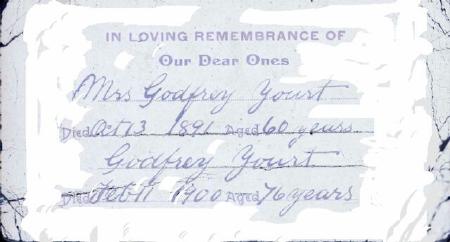 IN LOVING REMEMBRANCE OF
Our Dear Ones
Mrs Godfrey Yourt
Died Oct 13 1891 Aged 60 years
Godfrey Yourt
Died Feb 11 1900 Aged 76 years